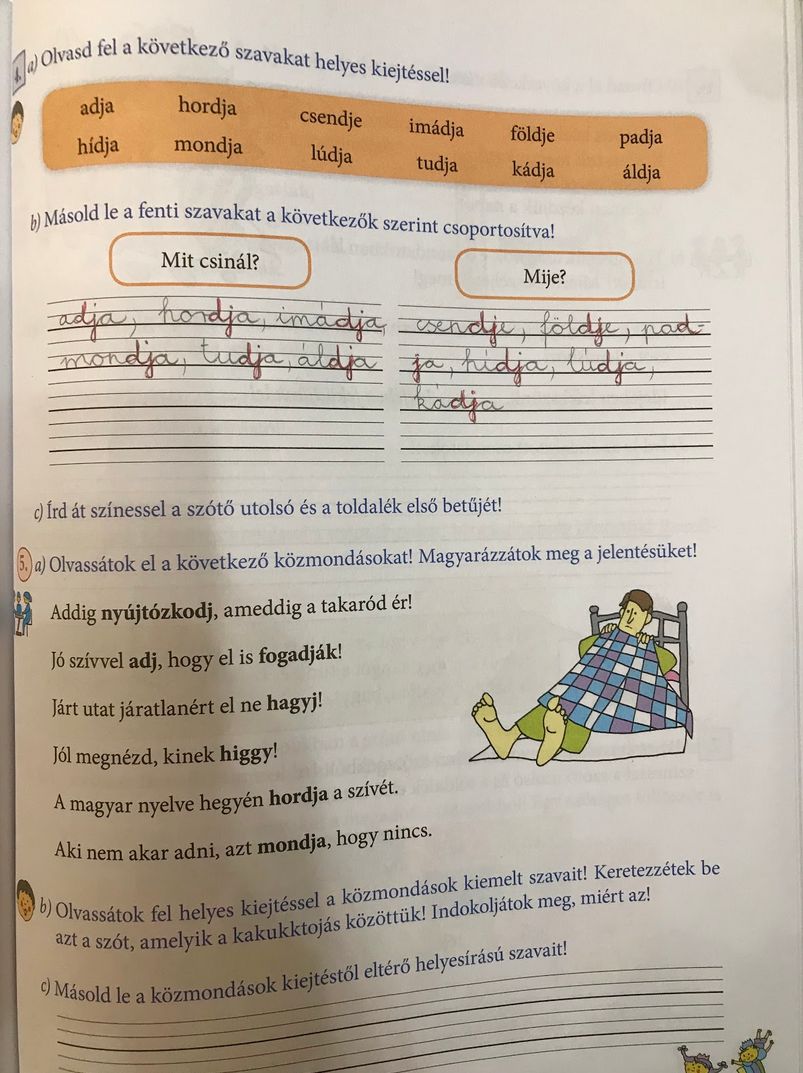 4. a) Olvasd fel a következő szavakat helyes kiejtéssel!
adja hordja csendje imádja földje padja
hídja mondja lúdja tudja kádja áldja
b) Másold le a fenti szavakat a következők szerint csoportosítva!
Mit csinál?
Mije?
adja, hordja, imádja,
mondja, tudja, áldja
csendje, földje, pad-
ja, hídja, lúdja,
kádja
c) Írd át színessel a szótő utolsó és a toldalék első betűjét!
5. a) Olvassátok el a következő közmondásokat! Magyarázzátok meg a jelentésüket!
Addig nyújtózkodj, ameddig a takaród ér!
Jó szívvel adj, hogy el is fogadják!
Járt utat járatlanért el ne hagyj!
Jól megnézd, kinek higgy!
A magyar nyelve hegyén hordja a szívét.
Aki nem akar adni, azt mondja, hogy nincs.
b) Olvassátok fel helyes kiejtéssel a közmondások kiemelt szavait! Keretezzétek be
azt a szót, amelyik a kakukktojás közöttük! Indokoljátok meg, miért az!
c) Másold le a közmondások kiejtéstől eltérő helyesírású szavait!